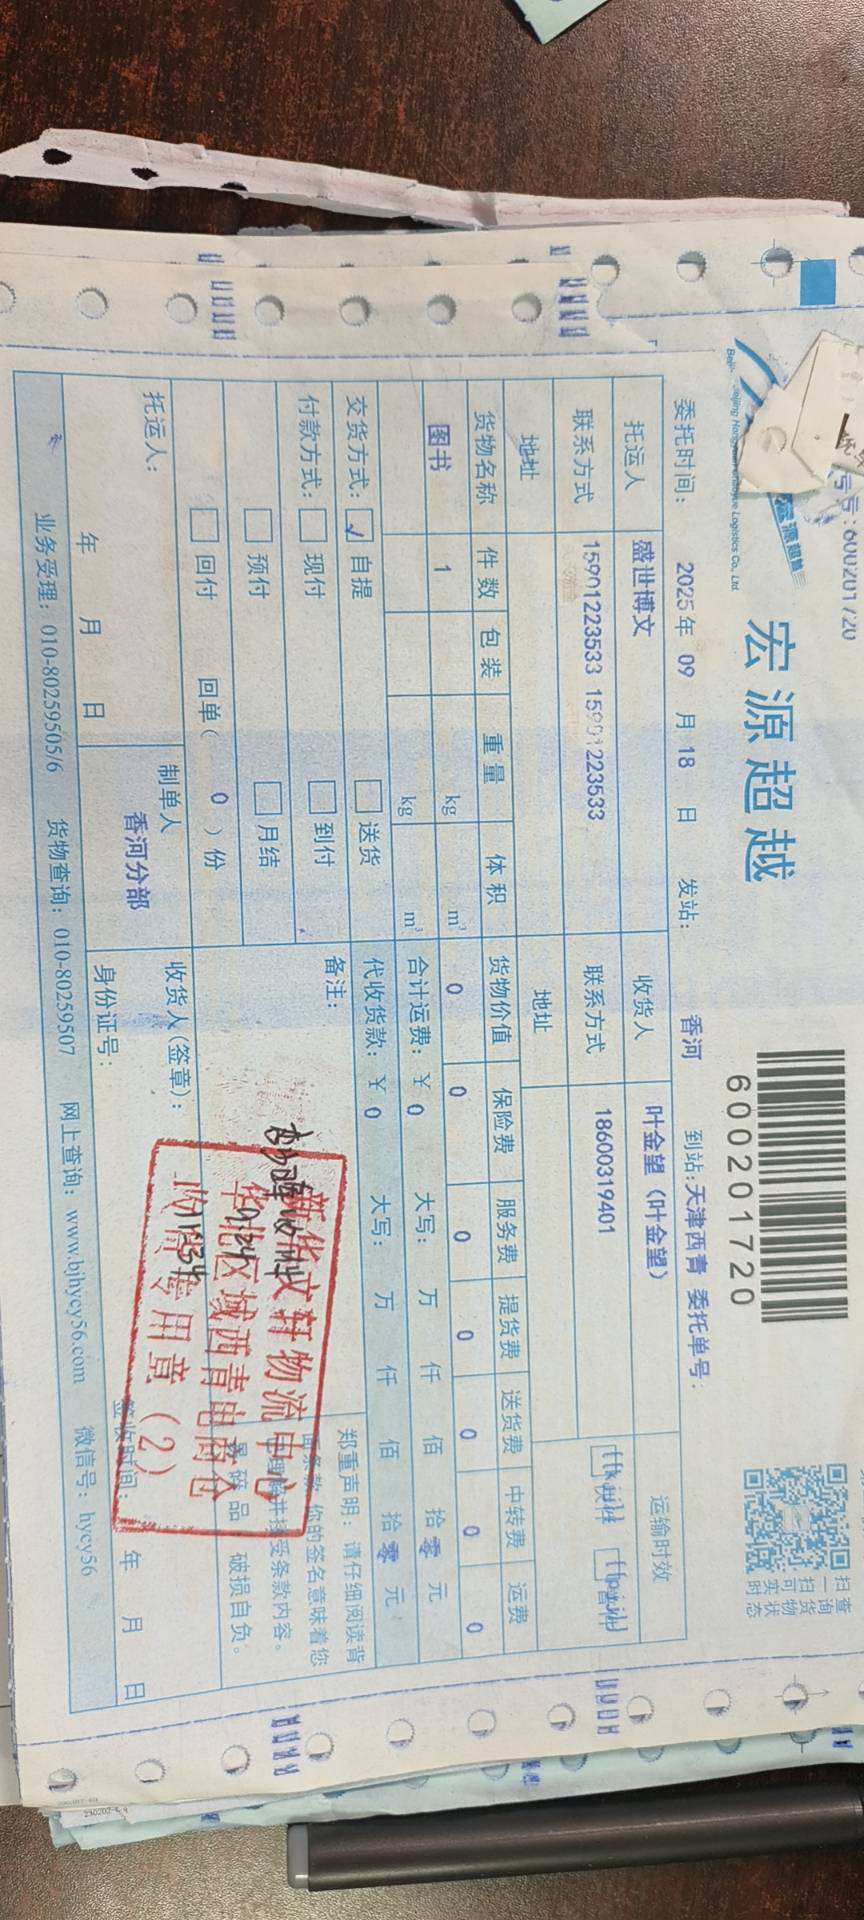 号:600201720
宏源超越
600201720
扫一扫可实时
查询货物状态
委托时间: 2025年 09 月 18 日 发站: 香河 到站:天津西青 委托单号:
托运人 盛世博文 收货人 叶金望(叶金望) 运输时效
联系方式 15901223533 15901223533 联系方式 18600319401
地址 地址
货物名称 件数 包装 重量 体积 货物价值 保险费 服务费 提货费 送货费 中转费 运费
图书 1 kg m³ 0 0 0 0 0 0 0
kg m³ 合计运费: ¥ 0 大写: 万 仟 佰 拾 零 元
交货方式: ✓ 自提 送货 代收货款: ¥ 0 大写: 万 仟 佰 拾 零 元
付款方式: 现付 到付 备注: 郑重声明:请仔细阅读背
面条款 你的签名意味着您
预付 月结 并接受条款内容。
回付 回单( 0 )份 易碎品 破损自负。
新华文轩物流中心
华北区域西青电商仓
收货专用章(2)
托运人: 制单人 收货人(签章):
香河分部
年 月 日 身份证号: 签收时间: 年 月 日
业务受理: 010-80259505/6 货物查询: 010-80259507 网上查询: www.bjhycy56.com 微信号: hycy56